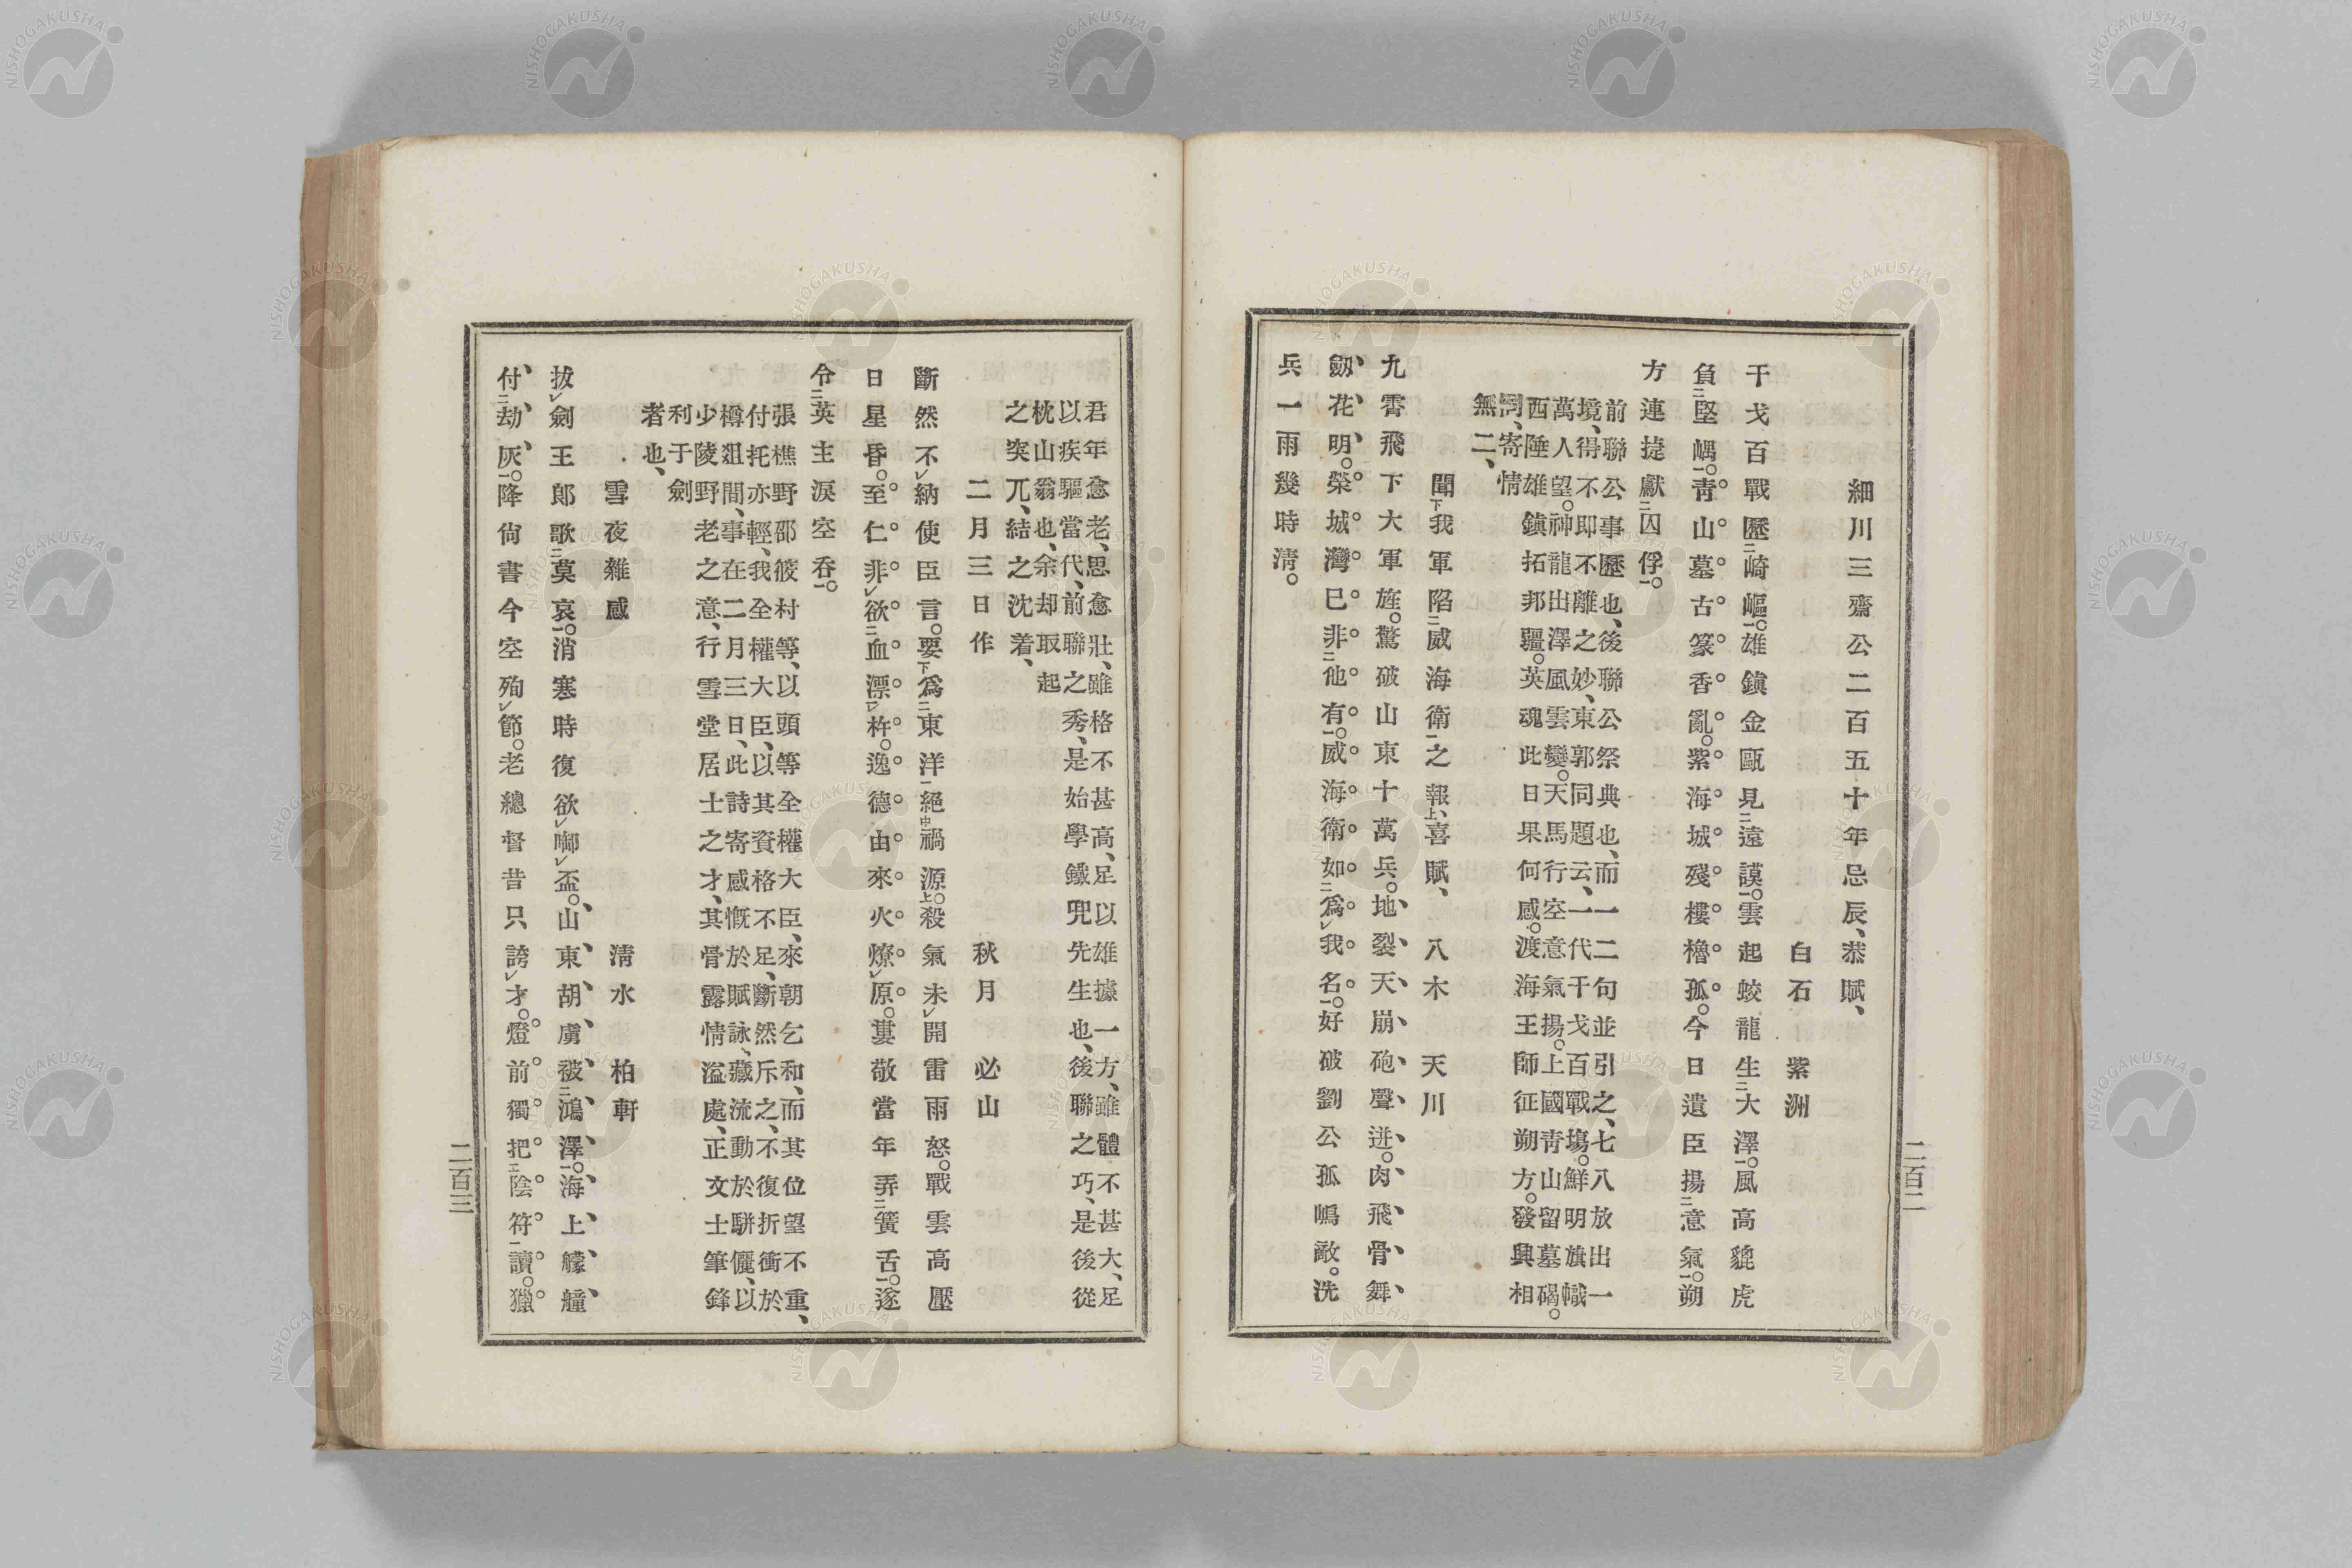 細川三齋公二百五十年忌辰、恭賦、
白石 紫洲
干戈百戰歷二崎嶇一。雄鎭金甌見二遠謨一。雲起蛟龍生二大澤一。風高貔虎
負二堅嵎一。靑山墓古篆香亂。紫海城殘樓櫓孤。今日遺臣揚二意氣一。朔
方連捷獻二囚俘一。
前聯公事歷也、後聯公祭典也、而一二句並引之、七八放出一
境、得不即不離之妙、東郭同題云、一代干戈百戰塲。鮮明旗幟
萬人望。神龍出澤風雲變。天馬行空意氣揚。上國靑山留墓碣。
西陲雄鎭拓邦疆。英魂此日果何感。渡海王師征朔方。發興相
、寄情
無二、
聞下我軍陷二威海衛一之報上、喜賦、 八木 天川
九霄飛下大軍旌。驚破山東十萬兵。地裂天崩砲聲迸。肉飛骨舞
劒花明。榮城灣已非二他有一。威海衛如二爲レ我名一。好破劉公孤嶋敵。洗
兵一雨幾時淸。
二百二
君年愈老、思愈壯、雖格不甚高、足以雄據一方、雖體不甚大、足
以疾驅當代、前聯之秀、是始學鐵兜先生也、後聯之巧、是後從
枕山翁也、余却取起
之突兀、結之沈着、
二月三日作 秋月 必山
斷然不レ納使臣言。要下爲二東洋一絕中禍源上。殺氣未レ開雷雨怒。戰雲高壓
日星昏。至仁非レ欲二血漂一レ杵。逸德由來火燎レ原。婁敬當年弄二簧舌一。遂
令二英主淚空呑一。
張樵野邵筱村等、以頭等全權大臣、來朝乞和、而其位望不重、
付托亦輕、我全權大臣、以其資格不足、斷然斥之、不復折衝於
樽俎間、事在二月三日、此詩寄感慨於賦詠、藏流動於駢儷、以
少陵野老之意、行雪堂居士之才、其骨露情溢處、正文士筆鋒
利于劍
者也、
雪夜雜感 淸水 柏軒
拔レ劍王郞歌二莫哀一。消寒時復欲レ啣レ盃。山東胡虜被二鴻澤一。海上艨艟
付二劫灰一。降尙書今空殉レ節。老總督昔只誇レ才。燈前獨把二陰符一讀。獵
二百三